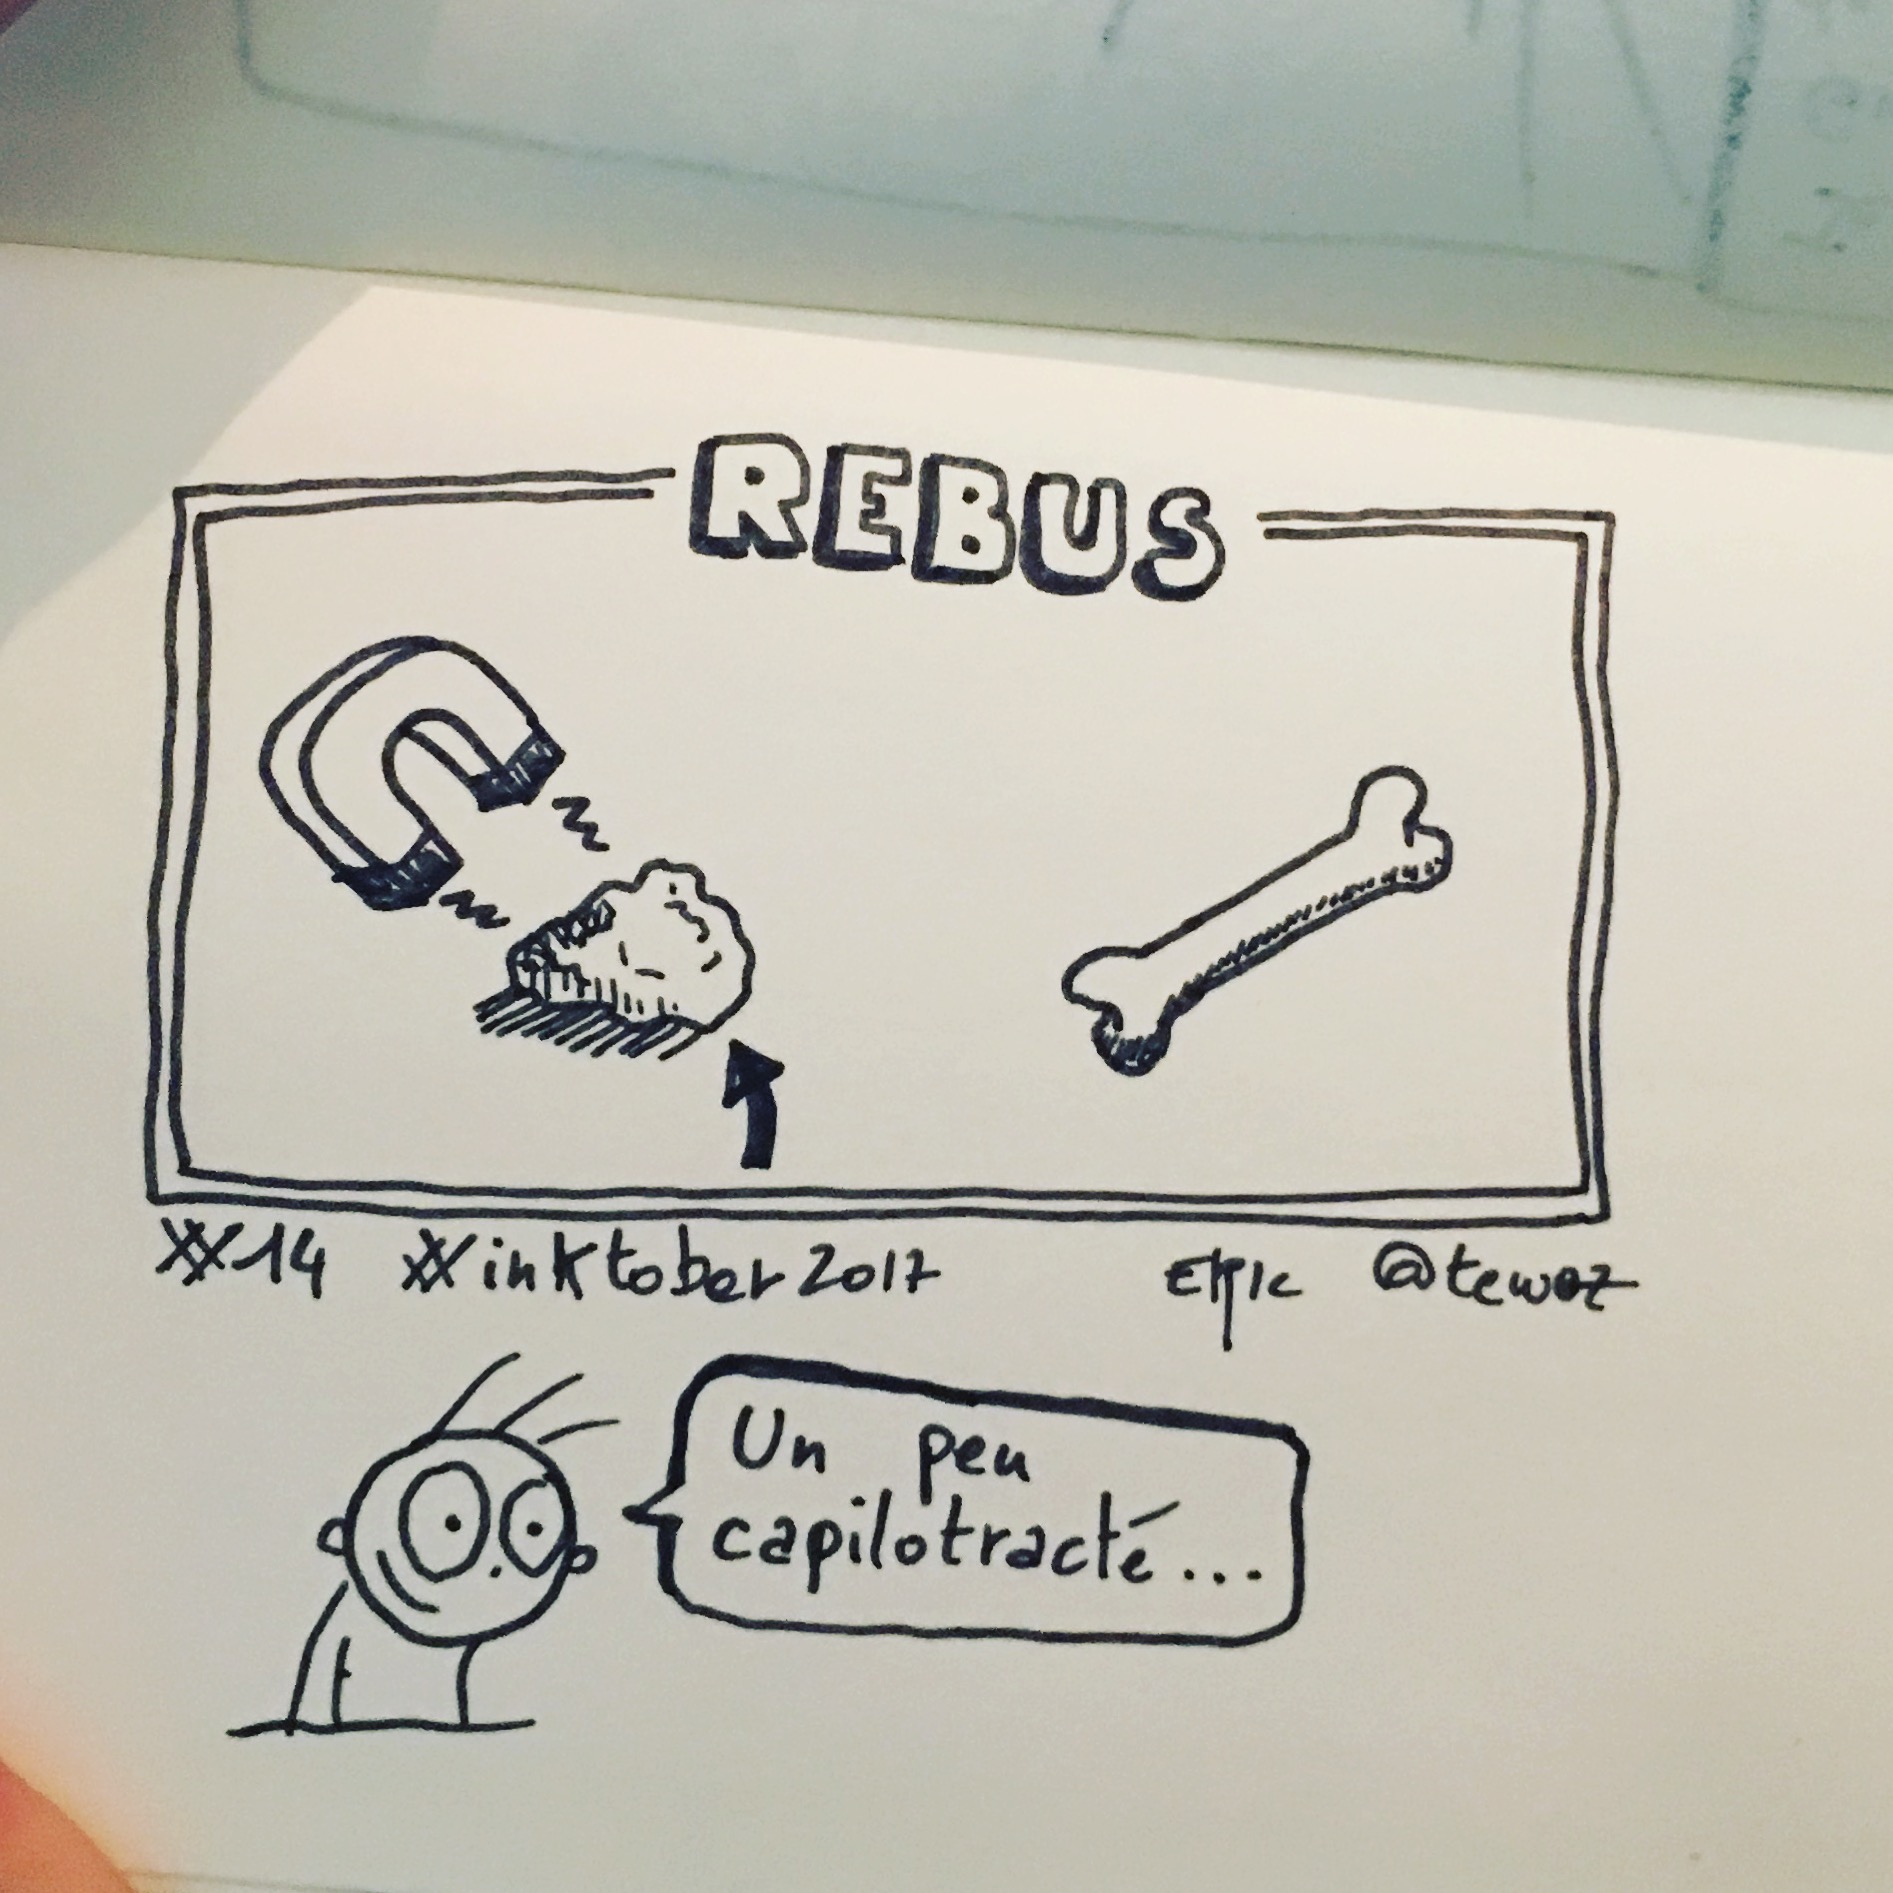 REBUS
#14 #inktober2017 @tewoz
Un peu
capilotracté...